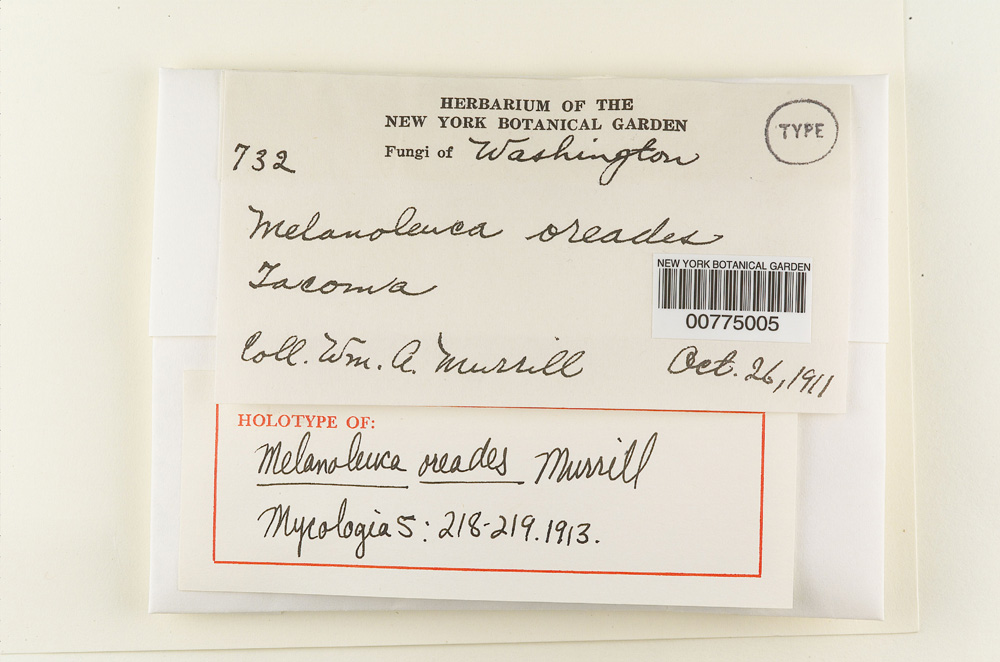 HERBARIUM OF THE
NEW YORK BOTANICAL GARDEN
TYPE
732 Fungi of Washington
Melanoleuca oreades
Tacoma
NEW YORK BOTANICAL GARDEN
00775005
Coll. Wm. A. Murrill Oct. 26, 1911
HOLOTYPE OF:
Melanoleuca oreades Murrill
Mycologia 5: 218-219. 1913.